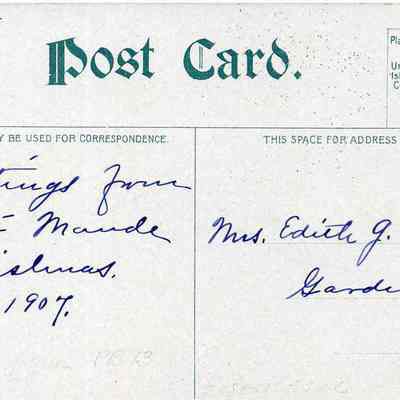 Post Card.
Pla
Un
Isl
C
Y BE USED FOR CORRESPONDENCE.
THIS SPACE FOR ADDRESS
tings from
Maude
istmas.
1907.
Mrs. Edith G.
Garde